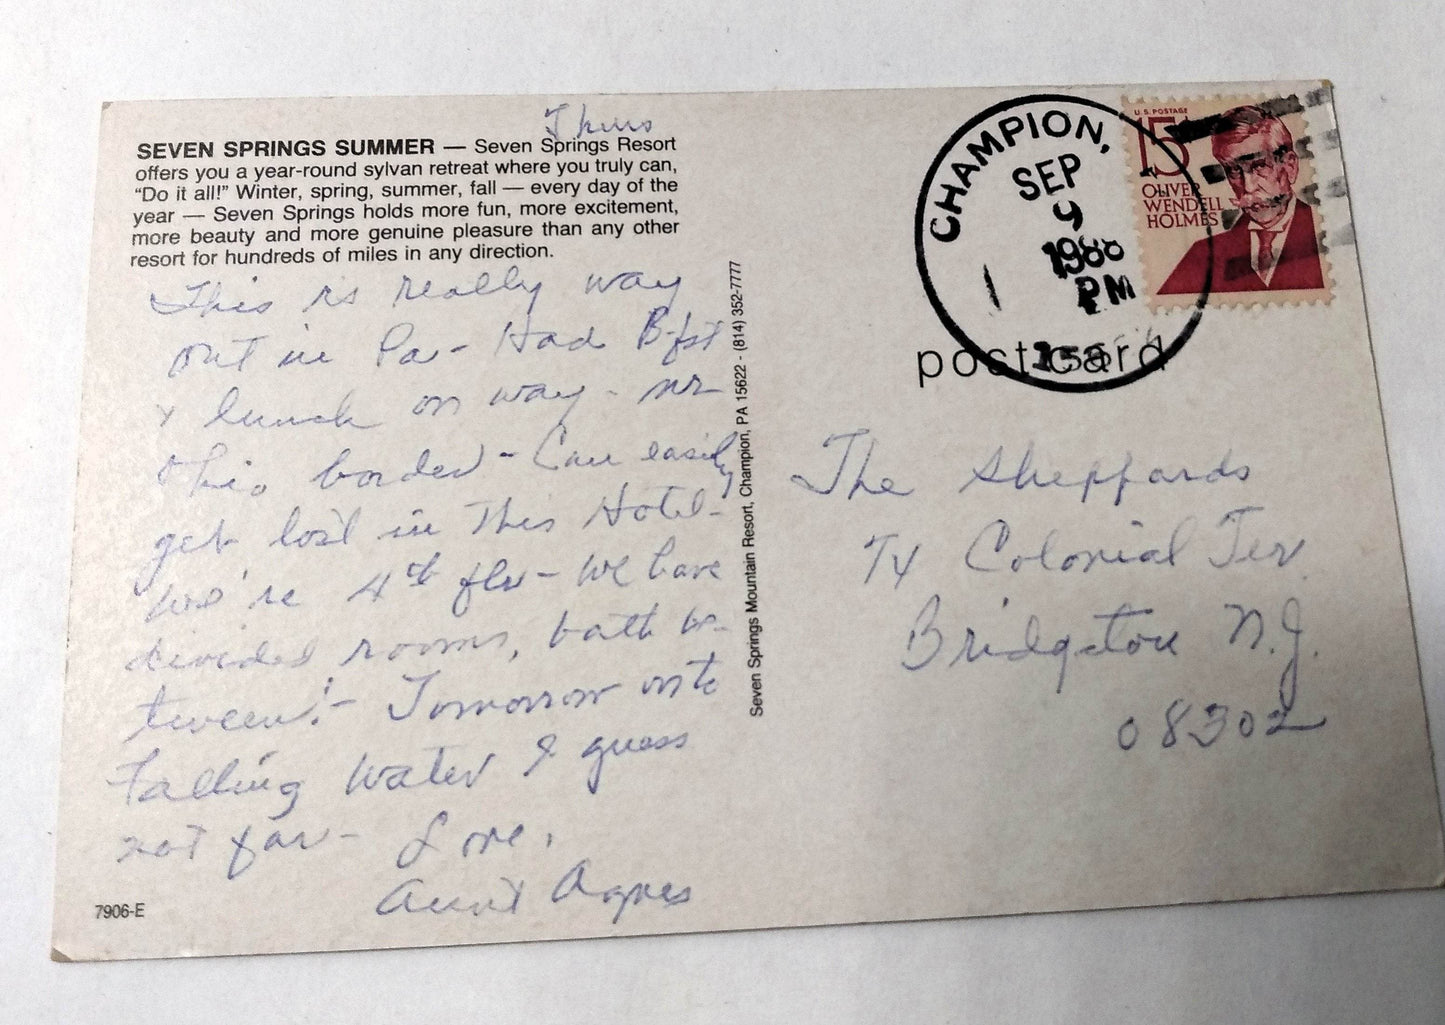 Thurs
SEVEN SPRINGS SUMMER — Seven Springs Resort
offers you a year-round sylvan retreat where you truly can,
“Do it all!” Winter, spring, summer, fall — every day of the
year — Seven Springs holds more fun, more excitement,
more beauty and more genuine pleasure than any other
resort for hundreds of miles in any direction.
This is really way
out in Pa - Had B-fst
& lunch on way - nr
Ohio border - Can easily
get lost in This Hotel -
We're 4th flr - We have
divided rooms, bath be-
tween! - Tomorrow onto
Falling Water I guess
not far - Love,
Aunt Agnes
7906-E
Seven Springs Mountain Resort, Champion, PA 15622 - (814) 352-7777
CHAMPION,
SEP
9
1988
PM
U.S. POSTAGE
15¢
OLIVER
WENDELL
HOLMES
postcard
The Sheppards
74 Colonial Ter.
Bridgeton N.J.
08302